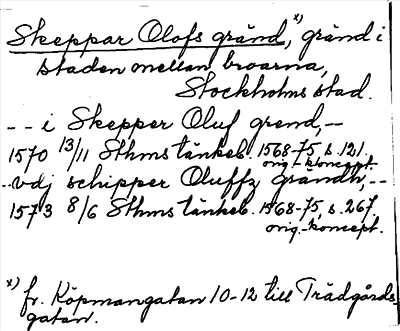 Skeppar Olofs gränd,ˣ⁾ gränd i
staden mellan broarna,
Stockholms stad.
-- i Skepper Oluf grend, --
1570 13/11 Sthms tänkeb. 1568-75, s. 121.
orig.-koncept.
-- vdj schipper Oluffz grandh, --
1573 8/6 Sthms tänkeb. 1568-75, s. 267.
orig.-koncept.
x) fr. Köpmangatan 10-12 till Trädgårds-
gatan.